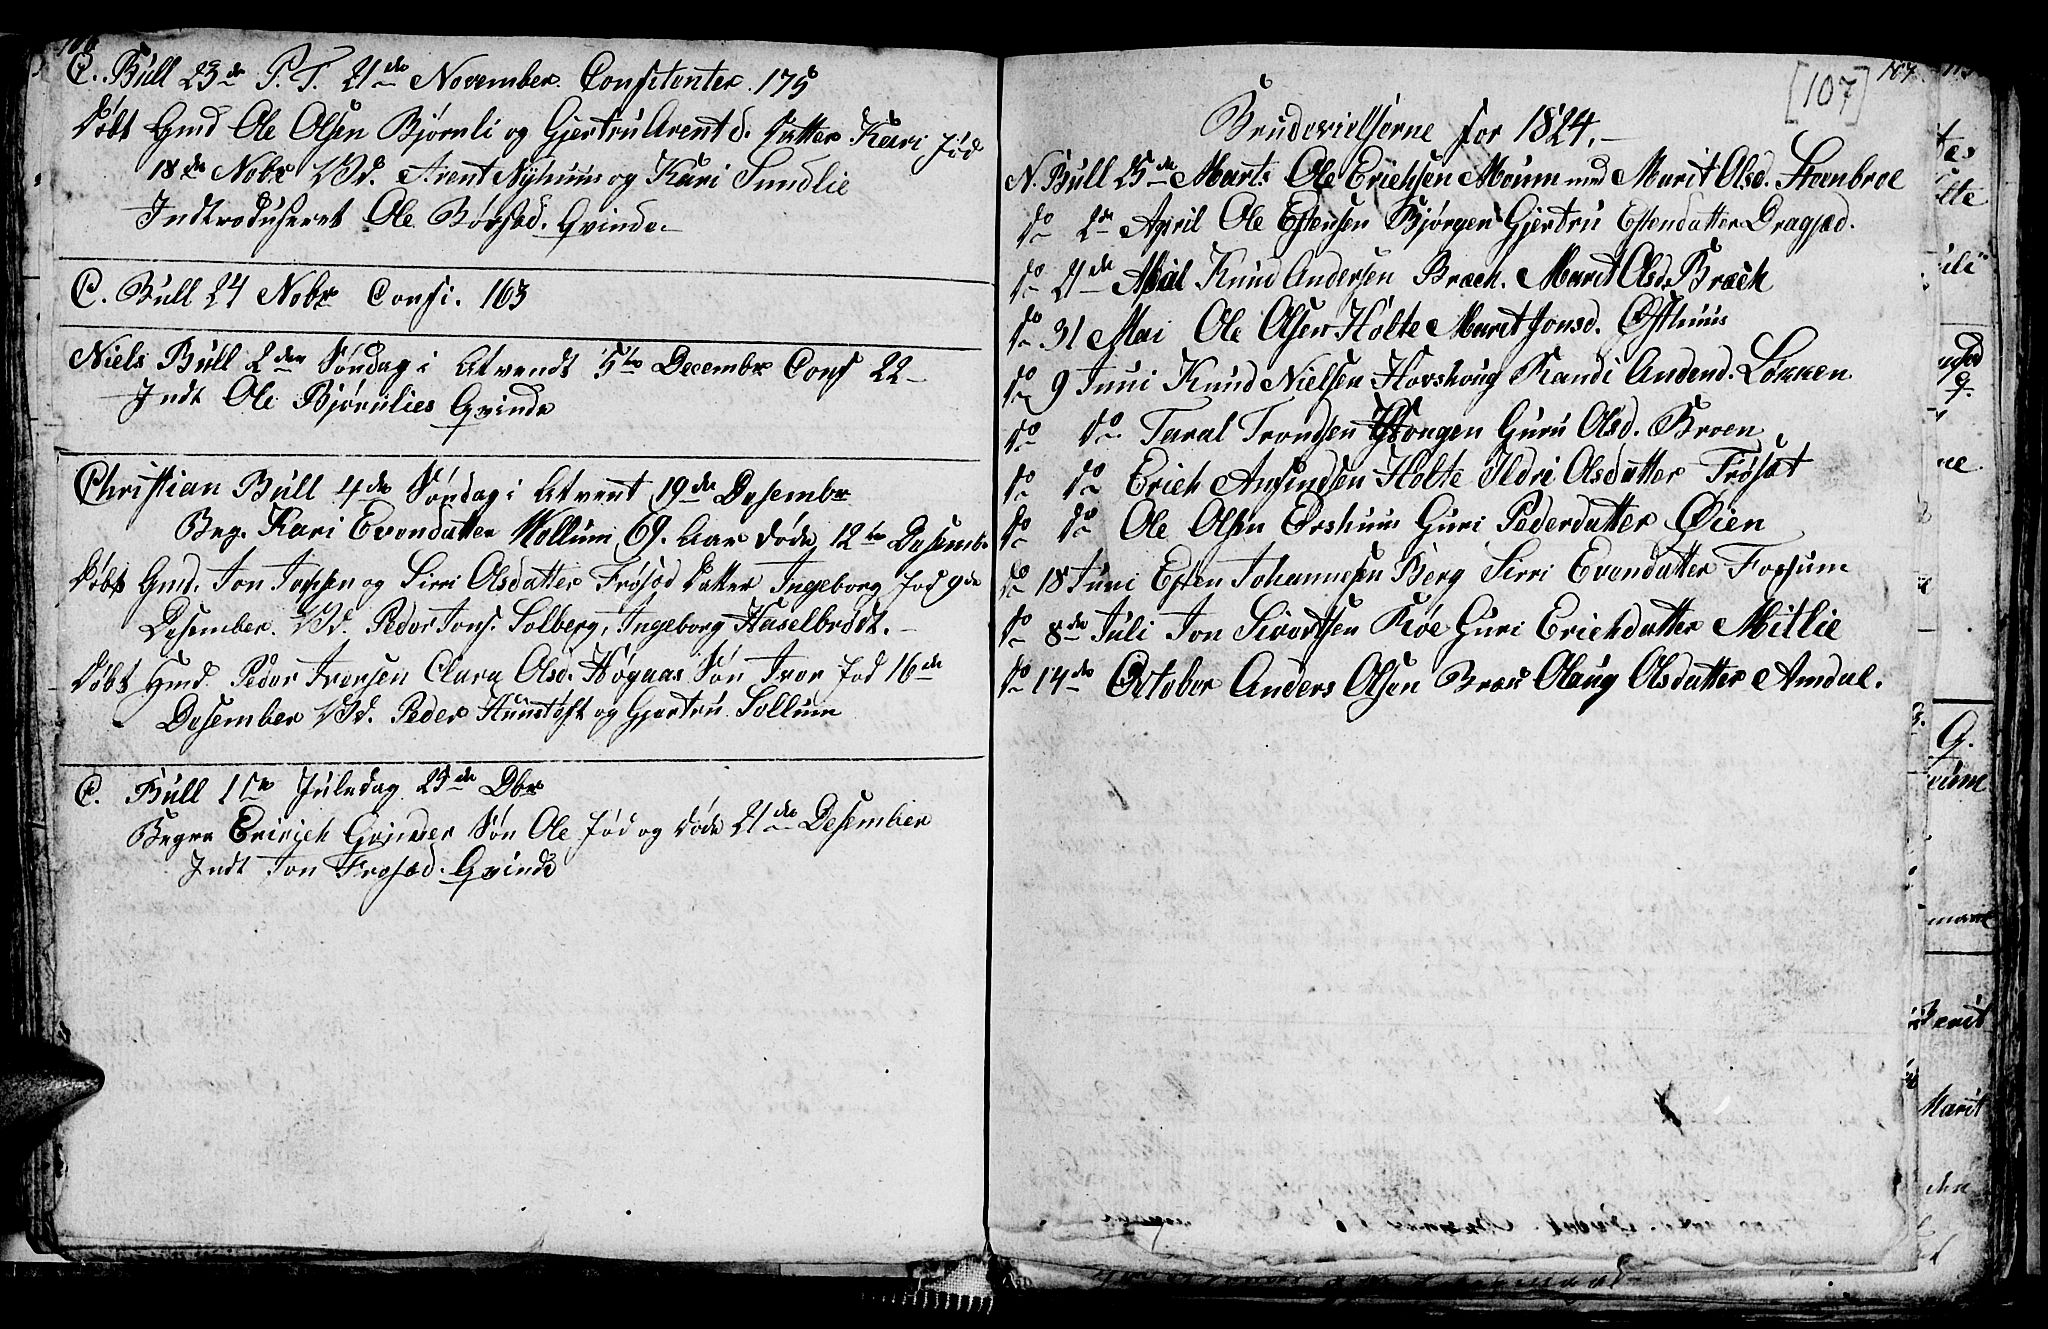 C. Bull 23de P. T. 21de November. Consitenter. 175
Døbt Gmd Ole Olsen Bjørnli og Gjertru Arentd. Datter Kari fød
18de Nobr VId. Arent Nyhuus og Kari Sundlie
Indtroduseret Ole Børsød. Qvinde.
C. Bull 24 Nobr Consi. 163
Niels Bull 2den Søndag i Atvendt 5te Decembr Cons 22
Indt Ole Bjørnlies Qvinde
Christian Bull 4de Søndag i Atvent 19de Desembr
Beg. Kari Evendatter Wollum 69. Aar døde 12te Desemb.
Døbt Gmd. Jon Jonsen og Sirri Olsdatter Frøsød Datter Ingeborg fød 9de
Desember. VId. Peder Jons. Solberg, Ingeborg Haselbrødt.
Døbt Gmd. Peder Iversen Clara Olsd. Høgaas Søn Iver fød 16de
Desember VId. Peder Huustøft og Gjertru Sollum
C. Bull 1ste Juledag 25de Dbr
Begra Eririch Søn Ole fød og døde 21de Desember
Indt Jon Frosød. Qvinde
[107] 107
Brudevielserne for 1824.
N. Bull 25de Marts Ole Erichsen Moum med Marit Olsd. Steenbroe
do 2de April Ole Estensen Bjørgen Gjertru Estendatter Dragsed.
do 21de Knud Andersen Bræch. Marit Olsd. Bræch
do 31 Mai Ole Olsen Holte Marit Jonsd. Østhuus
do 9 Juni Knud Nielsen Hovshoug Randi Andend. Løkken
do do Taral Trondsen Gongen Guru Olsd. Broen
do do Erich Amundsen Holte Ildri Olsdatter Frøsæt
do do Ole Olsen Ershuus Guri Pederdatter Øien
do 18 Juni Esten Johannesen Berg Sirri Evendatter Fossum
do 8de Juli Jon Sivertsen Røe Guri Erichdatter Mitlie
do 14de October Anders Olsen Olaug Olsdatter Amdal.
Berit
Marit